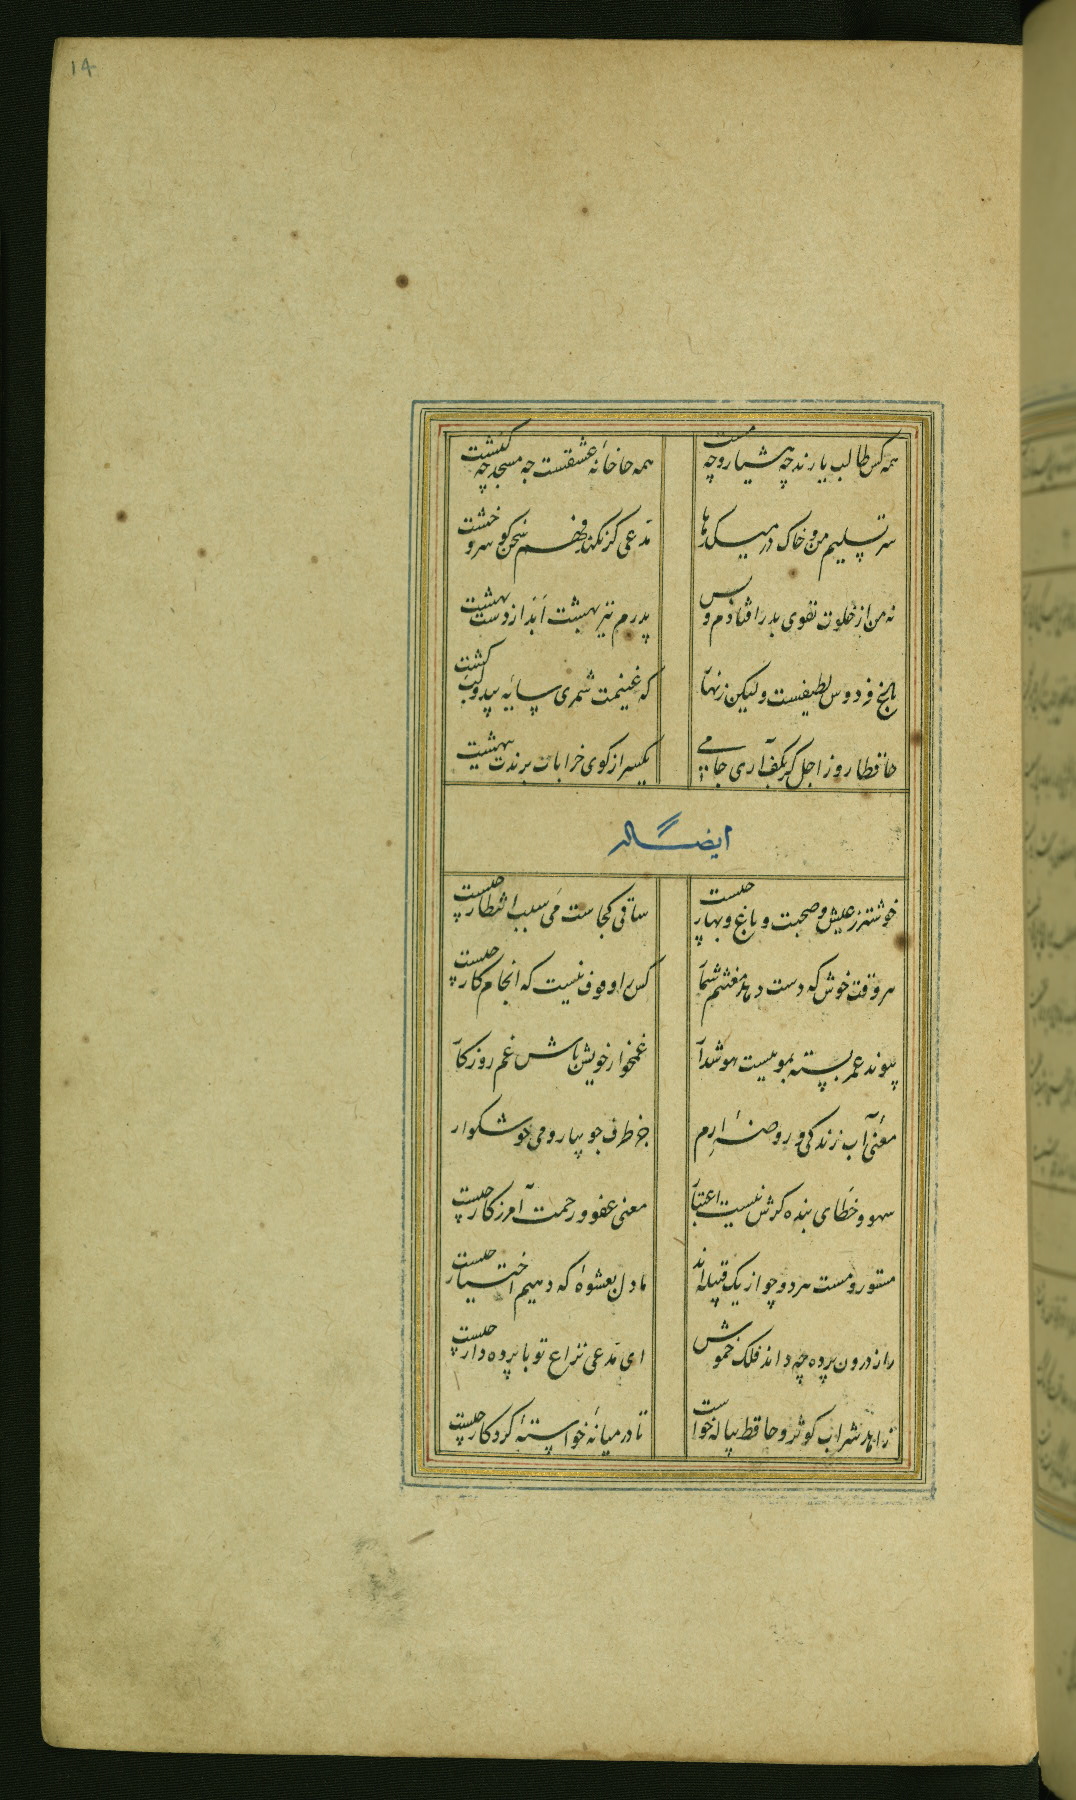 ۱۴
همه کس طالب یارند چه هشیار و چه مست
همه جا خانهٔ عشقست چه مسجد چه کنشت
سر تسلیم من و خاک در میکدها
مدعی گر نکند فهم سخن گو سر و خشت
نه من از خلوت تقوی بدر افتادم و بس
پدرم نیز بهشت ابد از دست بهشت
باغ فردوس لطیفست ولیکن زنهار
که غنیمت شمری سایهٔ بید و لب کشت
حافظا روز اجل گر بکف آری جامی
یکسر از کوی خرابات برندت ببهشت
ایضاً له
خوشتر ز عیش و صحبت و باغ و بهار چیست
ساقی کجاست می سبب انتظار چیست
هر وقت خوش که دست دهد مغتنم شمار
کس را وقوف نیست که انجام کار چیست
پیوند عمر بسته بموییست هوشدار
غمخوار خویش باش غم روزگار
معنی آب زندگی و روضهٔ ارم
جز طرف جویبار و می خوشگوار
سهو و خطای بنده گرش نیست اعتبار
معنی عفو و رحمت آمرزگار چیست
مستور و مست هر دو چو از یک قبیله‌اند
ما دل بعشوهٔ که دهیم اختیار چیست
راز درون پرده چه داند فلک خموش
ای مدعی نزاع تو با پرده دار چیست
زاهد شراب کوثر و حافظ پیاله خواست
تا در میانه خواستهٔ کردگار چیست